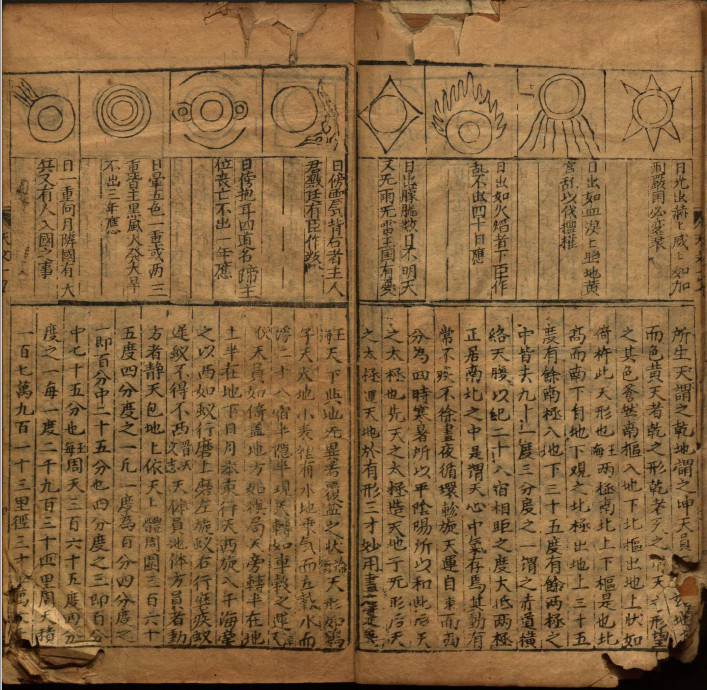 日光出上上如加
嚴國必
日出如血上照地黄
宮乱以伐擅權
日出如火焰者下臣作
乱不出四十日應
日出朦朧数日不明天
又无雨无雷主国有憂
所生天謂之乾地謂之坤天員
而色黄天者乾之形乾者天之形望
之其色蒼然南樞入地下北樞出地上狀如
倚杵此天形也兩極南北上下樞是也北
高而南下自地下观之北極出地上三十五
度有餘南極入地下三十五度有餘兩極之
中皆去九十一度三分度之一謂之赤道横
絡天腹以紀二十八宿相距之度大低兩極
正居南北之中是謂天心中氣存焉其動有
常不疾不徐晝夜循環斡旋天運自東而西
分為四時寒暑所以平陰陽所以和此后天
之太極也先天之太極造天地于无形后天
之太極運天地於有形三才妙用盡
日傍氣背右者主人
君廷有臣作
日傍抱耳四直名啼主
位丧亡不出一年應
日暈五色一重或两三
重皆主黒風火灾大旱
不出三年應
日一重向月隣國有大
兵又有人入國之事
天下此地无異覆盆之状天形如鷄
子天大地小表裡有水地乘气而立載水而
浮二十八宿半隱半現天轉如車轂之運
天員如倚盖地方如棋局天旁轉半在地
上半在地下日月本東行天西旋入于海牽
之以西如蚁行磨上磨左旋蚁右行磨疾蚁
遅蚁不得不西天体員地体方員者動
方者静天包地上依天上體周圍三百六十
五度四分度之一凡一度為百分四分度之
一即百分中二十五分也四分度之三即百分
中七十五分也周天三百六十五度四分
度之一每一度二千九百三十四里周天積
一百七萬九百一十三里徑三十